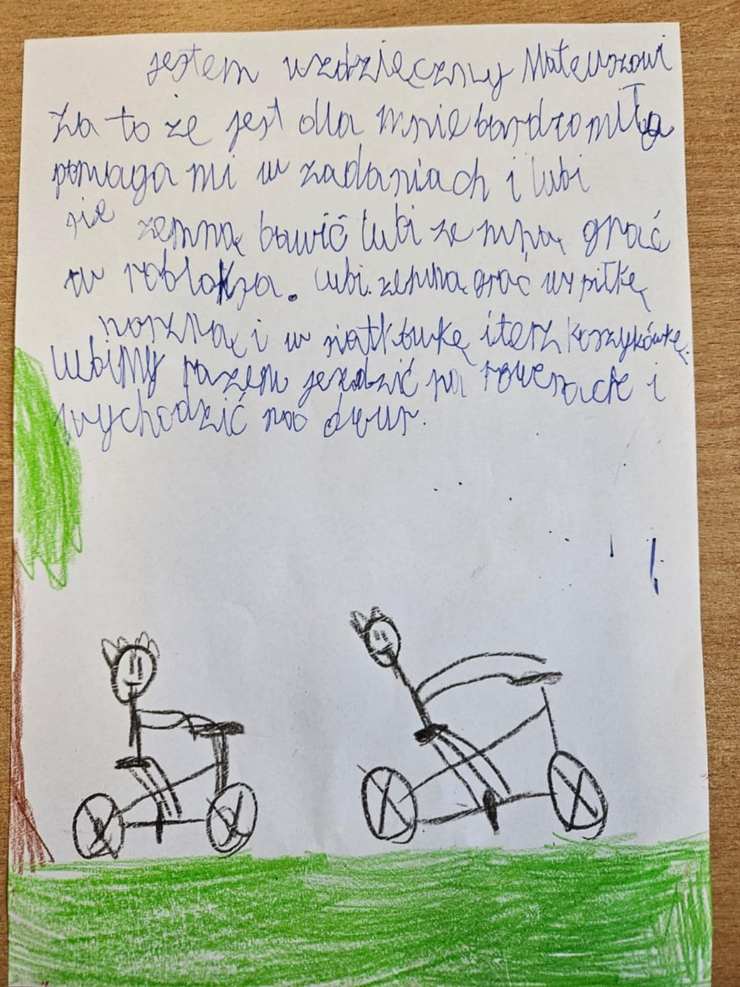 jestem wzdzięczny Mateuszowi
za to że jest dla mnie bardzo miły
pomaga mi w zadaniach i lubi
się zemną bawić lubi ze mną grać
w robloksa. lubi zemną grać w piłkę
nożną i w siatkbukę i też koszykówkę.
lubimy razem jeździć na rowerach i
wychodzić na dwur.